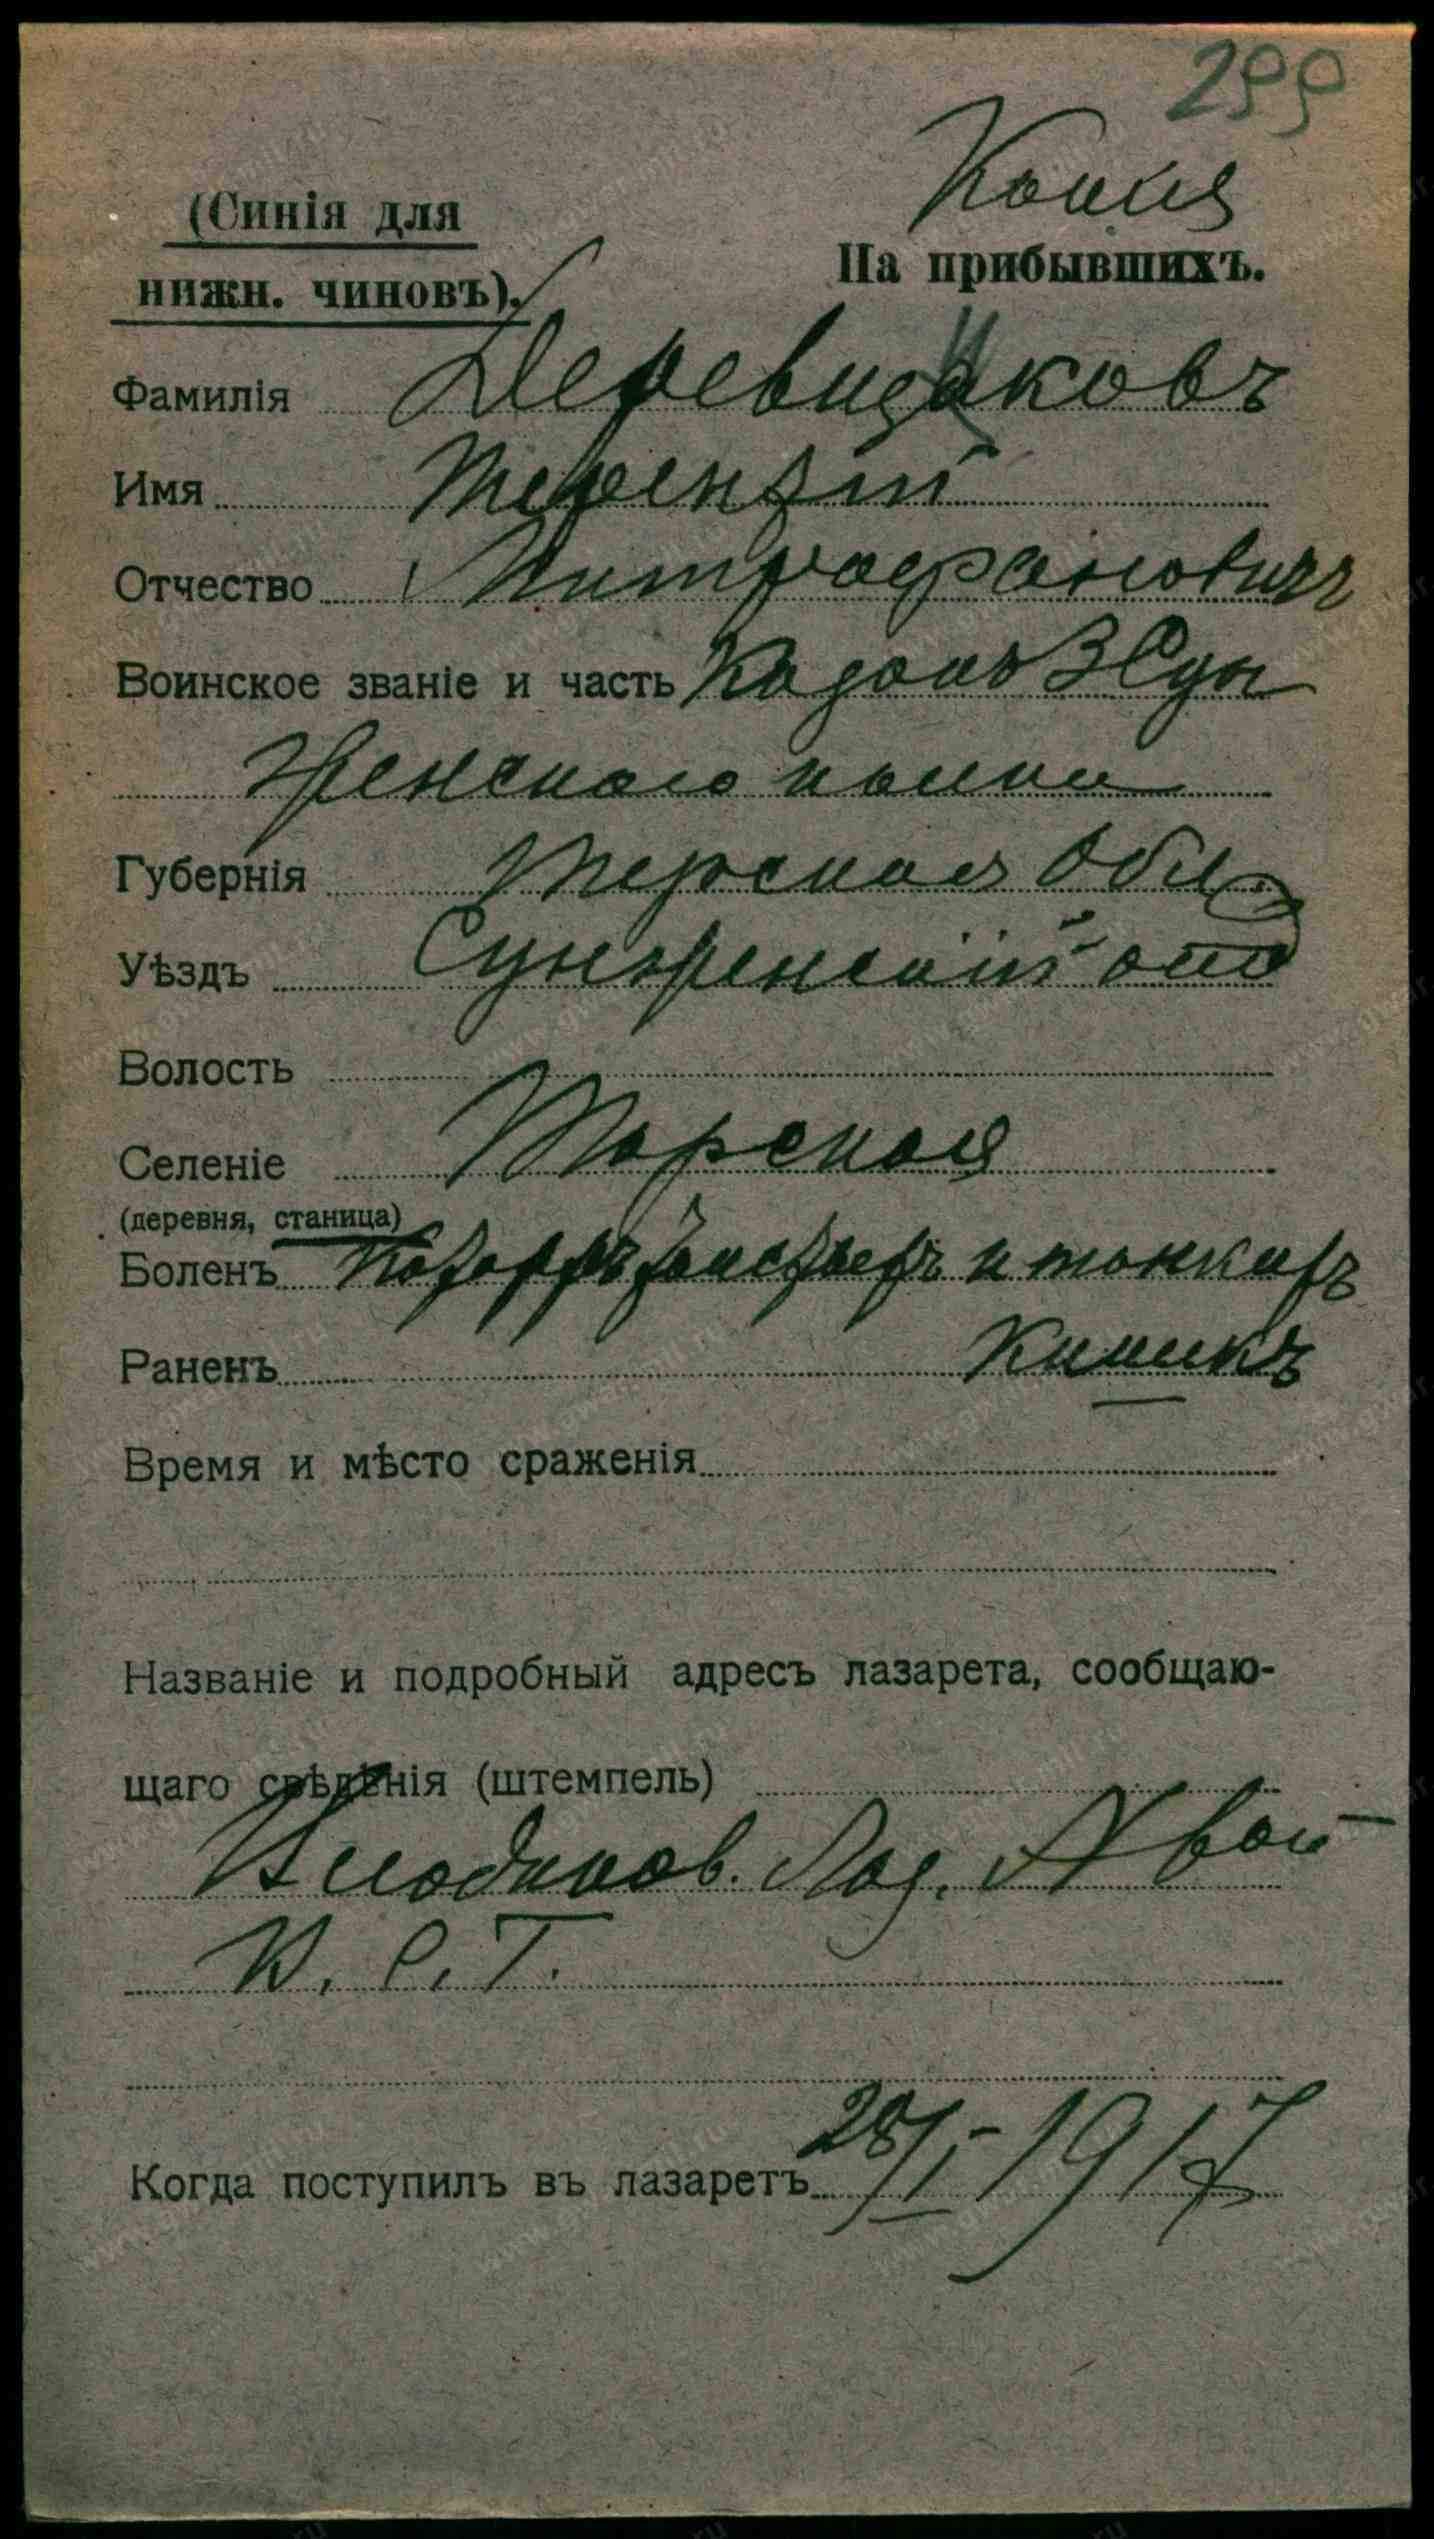 299
Копия
(Синія для
На прибывшихъ.
нижн. чиновъ).
Фамилія Деревщаковъ
Имя Терентій
Отчество Митрофановичъ
Воинское званіе и часть Казакъ 3 Сун
женскаго полка
Губернія Терская Обл.
Уѣздъ Сунженскій отд
Волость
Селеніе Тарская
(деревня, станица)
Боленъ и тонкихъ
Раненъ кишикъ
Время и мѣсто сраженія
Названіе и подробный адресъ лазарета, сообщаю-
щаго свѣдѣнія (штемпель)
Владикав. Лаз.
В. С. Г.
Когда поступилъ въ лазаретъ 28/I-1917